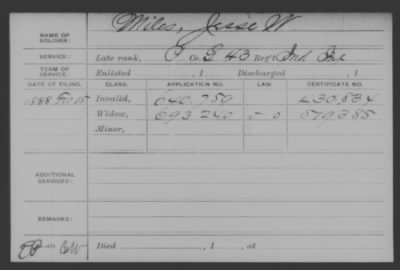 NAME OF SOLDIER: Miles, Jesse W
SERVICE: Late rank, P Co. E 43 Reg't Ind Inf
TERM OF SERVICE: Enlisted , 1 Discharged , 1
DATE OF FILING. CLASS. APPLICATION NO. LAW. CERTIFICATE NO.
1888 Feb 15 Invalid, 640,750 430,834
Widow, 693240 679,385
Minor,
ADDITIONAL SERVICES:
REMARKS:
Died , 1 , at